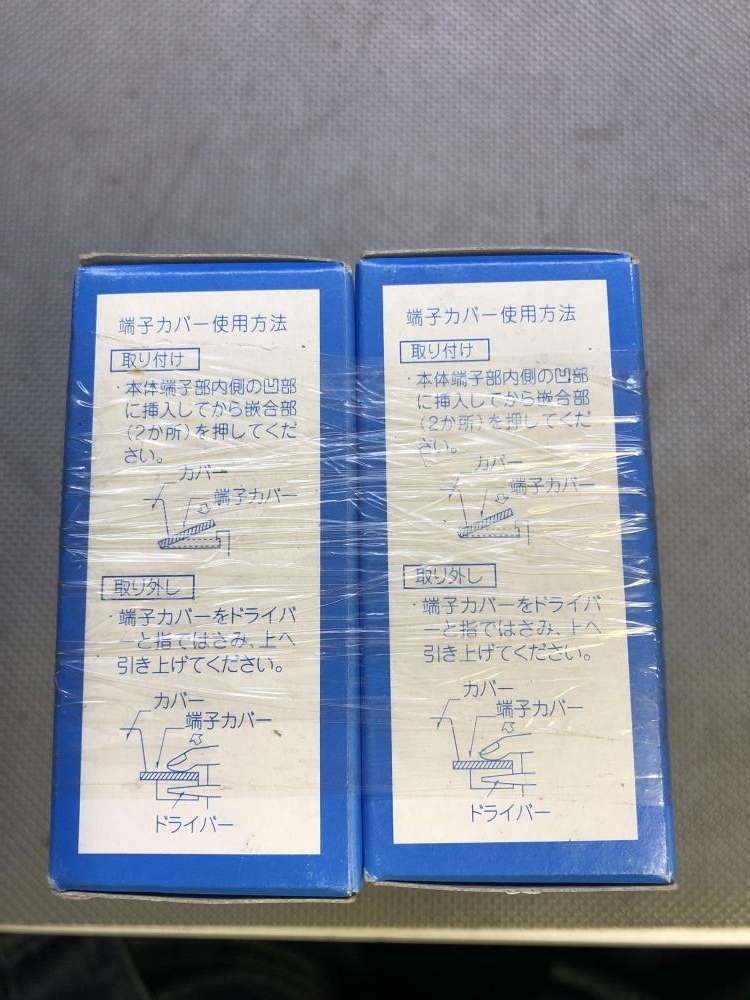 端子カバー使用方法
取り付け
・本体端子部内側の凹部
に挿入してから嵌合部
(2か所)を押してくだ
さい。
カバー
端子カバー
取り外し
・端子カバーをドライバ
ーと指ではさみ、上へ
引き上げてください。
カバー
端子カバー
ドライバー
端子カバー使用方法
取り付け
・本体端子部内側の凹部
に挿入してから嵌合部
(2か所)を押してくだ
さい。
カバー
端子カバー
取り外し
・端子カバーをドライバ
ーと指ではさみ、上へ
引き上げてください。
カバー
端子カバー
ドライバー